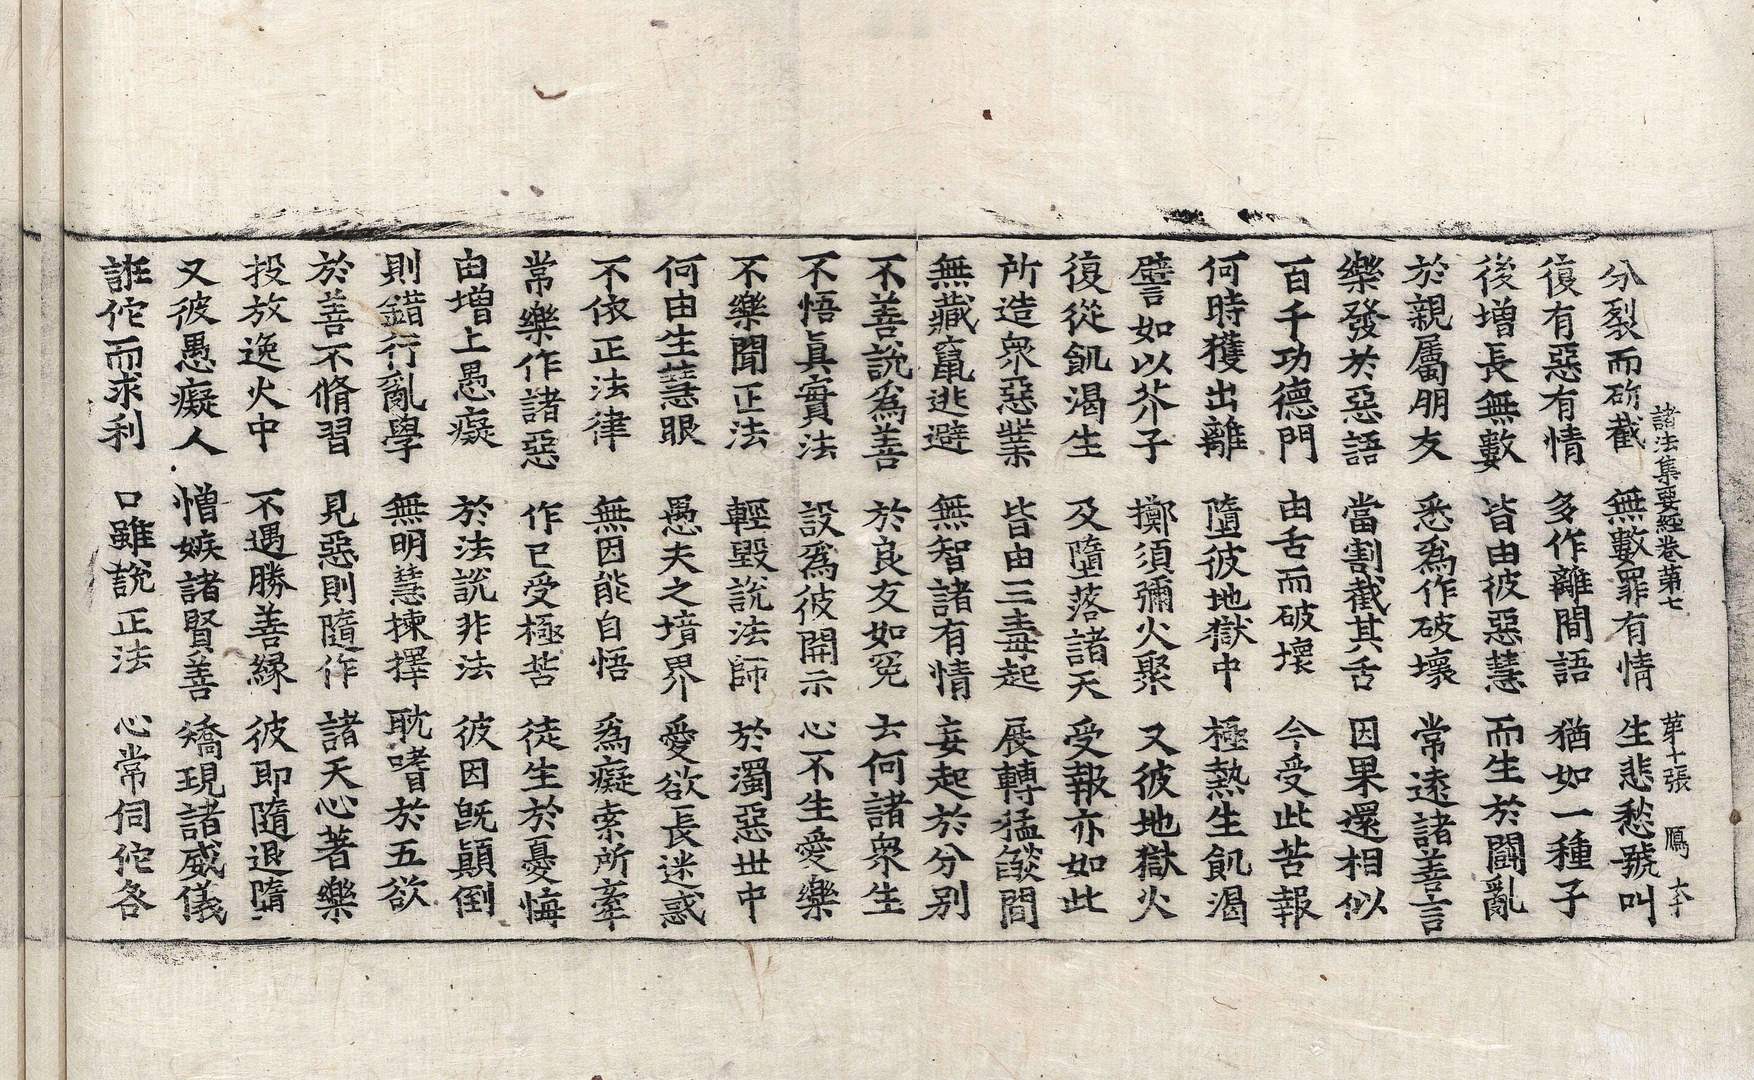 諸法集要經卷第七　第十張　鳳
分裂而斫截　無數罪有情　生悲愁號叫
復有惡有情　多作離間語　猶如一種子
後增長無數　皆由彼惡慧　而生於鬪亂
於親屬朋友　悉爲作破壞　常遠諸善言
樂發於惡語　當割截其舌　因果還相似
百千功德門　由舌而破壞　今受此苦報
何時獲出離　墮彼地獄中　極熱生飢渴
譬如以芥子　擲須彌火聚　又彼地獄火
復從飢渴生　及墮落諸天　受報亦如此
所造衆惡業　皆由三毒起　展轉猛燄間
無藏竄逃避　無智諸有情　妄起於分别
不善說爲善　於良友如冤　去何諸衆生
不悟眞實法　設爲彼開示　心不生愛樂
不樂聞正法　輕毀說法師　於濁惡世中
何由生慧眼　愚夫之境界　愛欲長迷惑
不依正法律　無因能自悟　爲癡索所牽
常樂作諸惡　作已受極苦　徒生於憂悔
由增上愚癡　於法說非法　彼因旣顚倒
則錯行亂學　無明慧揀擇　耽嗜於五欲
於善不脩習　見惡則隨作　諸天心著樂
投放逸火中　不遇勝善緣　彼即隨退墮
又彼愚癡人　憎嫉諸賢善　矯現諸威儀
誑佗而求利　口雖說正法　心常伺佗各